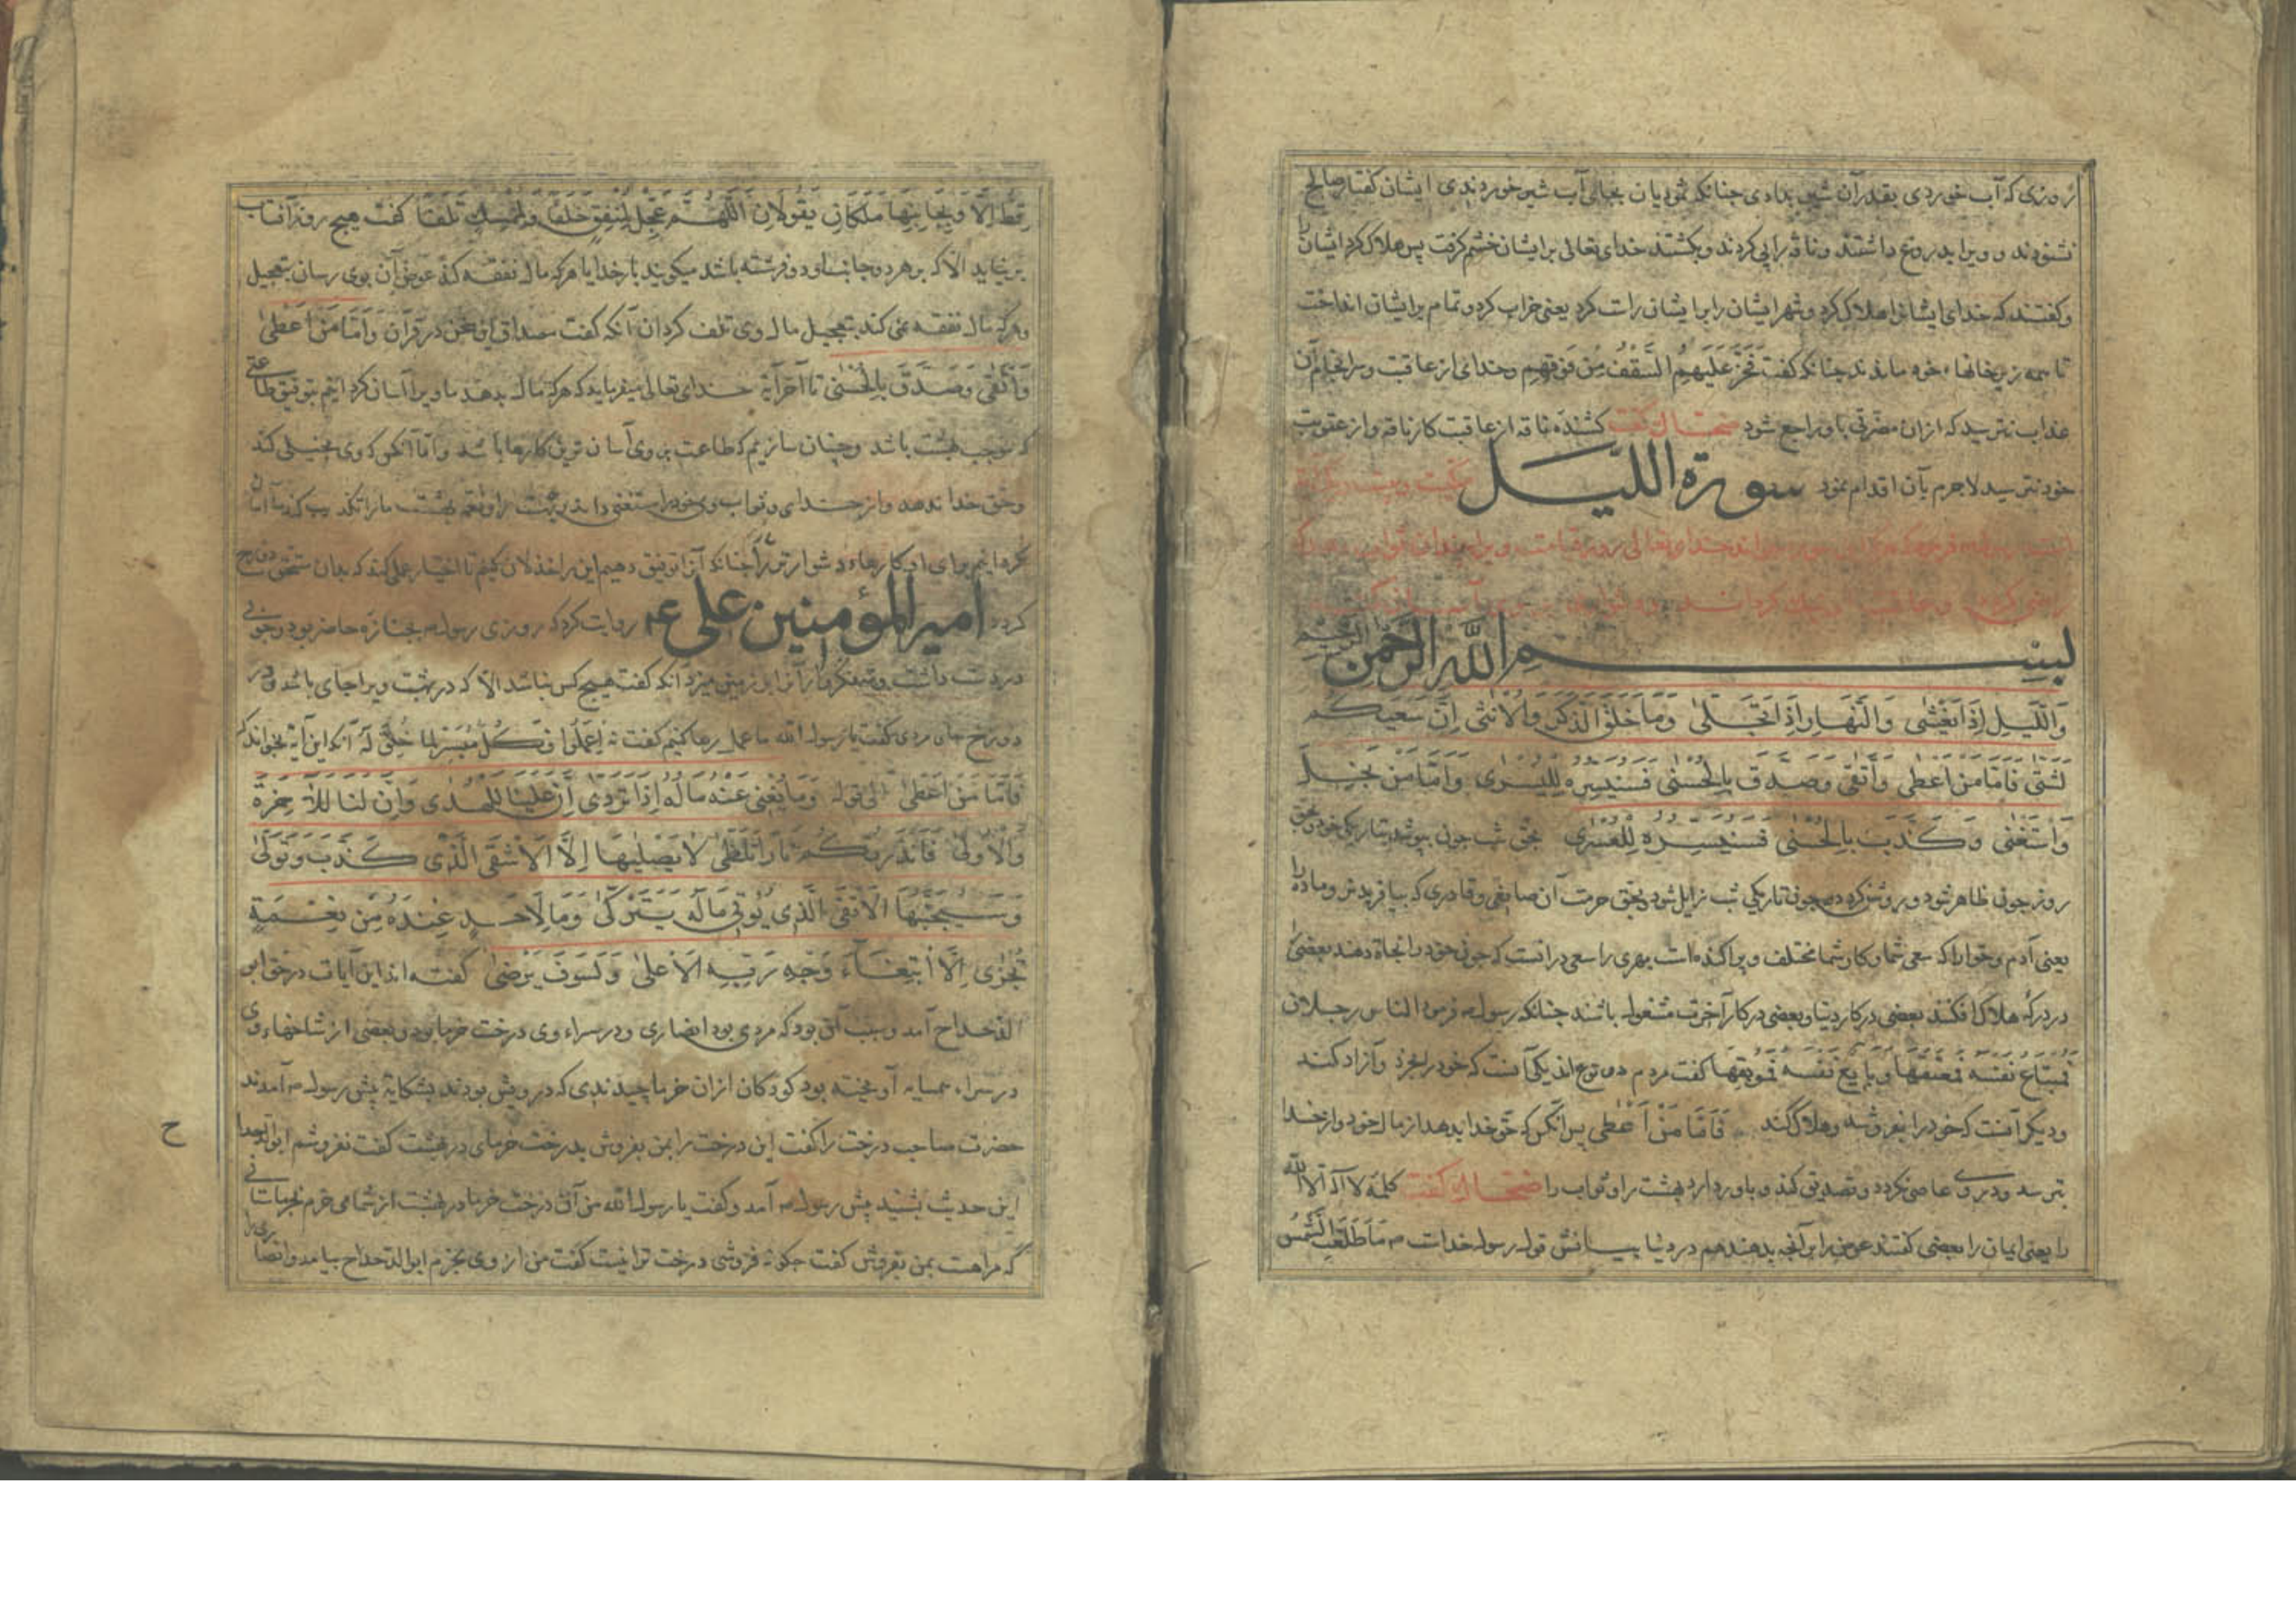 روزی که آب خوردی بقدر آن شیر بدادی چنانکه ثمودیان بجای آب شیر خوردندی ایشان گفتار صالح
نشنودند و ویرا بدروغ داشتند و ناقه را پی کردند و بکشتند خدای تعالی بر ایشان خشم گرفت پس هلاک کرد ایشان را
و گفتند که خدای ایشانرا هلاک کرد و شهر ایشان را برایشان راست کرد یعنی خراب کرد و تمام برایشان انداخت
تا همه زیر خانهاء خود ماندند چنانکه گفت فَخَرَّ عَلَيهِمُ السَّقْفُ مِن فَوقِهِم و خدای از عاقبت و سرانجام آن
عذاب نترسید که از آن مضرتی باو راجع شود ضحاک گفت کشنده ناقه از عاقبت کار ناقه و از عقوبت
خود نترسید لاجرم بآن اقدام نمود سورة الليل
بسم الله الرحمن الرحیم
وَاللَّيلِ إِذَا يَغْشٰى وَالنَّهَارِ إِذَا تَجَلّٰى وَمَا خَلَقَ الذَّكَرَ وَالْأُنْثٰى إِنَّ سَعْيَكُم
لَشَتّٰى فَأَمَّا مَنْ أَعْطٰى وَاتَّقٰى وَصَدَّقَ بِالْحُسْنٰى فَسَنُيَسِّرُهُ لِلْيُسْرٰى وَأَمَّا مَنْ بَخِلَ
وَاسْتَغْنٰى وَكَذَّبَ بِالْحُسْنٰى فَسَنُيَسِّرُهُ لِلْعُسْرٰى بحق شب چون بپوشد بتاریکی خود و بحق
روز چون ظاهر شود و روشن کردد چون تاریکی شب زایل شود و بحق حرمت آن صانعی و قادری که بیافریدش و ماده را
یعنی آدم و حوا را که سعی شما و کار شما مختلف و پراکنده است بهری را سعی در آنست که چون خود را نجاة دهند بعضی
در درکه هلاک افکند بعضی در کار دنیا و بعضی در کار آخرت مشغول باشند چنانکه رسول فرمود الناس رجلان
فَمُبتَاعٌ نَفسَهُ فَمُعتِقُهَا وَبَایِعٌ نَفسَهُ فَمُوبِقُهَا گفت مردم دو نوع اند یکی آنست که خود را بخرد و آزاد کند
و دیگر آنست که خود را بفروشد و هلاک کند فَأَمَّا مَنْ أَعْطٰى پس آنکس که حق خدا بدهد از مال خود و از خدا
بترسد و در وی عاصی نکردد و تصدیق کند و باور دارد بهشت را و ثواب را ضحاک گفت کلمهٔ لا اله الا الله
را یعنی ایمان را بعضی گفتند عوض را بر آنچه بدهند هم در دنیا بیانش قول رسول خداست مَا طَلَعَتِ الشَّمْسُ
قَطُّ إِلَّا وَبِجَانِبَيهَا مَلَكَانِ يَقُولَانِ اللّٰهُمَّ عَجِّلْ لِمُنْفِقٍ خَلَفًا وَلِمُمْسِكٍ تَلَفًا گفت هیچ روز آفتاب
برنیاید الا که بر هر دو جانب او دو فرشته باشد میکویند بار خدایا هر که مال نفقه کند عوض آن بوی رسان بتعجیل
و هر که مال نفقه نمی کند بتعجیل مال وی تلف کردان آنکه گفت مصداق این سخن در قرآن وَأَمَّا مَنْ أَعْطٰى
وَاتَّقٰى وَصَدَّقَ بِالْحُسْنٰى تا آخر آیة خدای تعالی میفرماید که هر که مال بدهد ما ویرا آسان کردانیم بتوفیق طاعتی
که موجب بهشت باشد و چنان سازیم که طاعت بر وی آسان ترین کارها باشد و اما آنکس که وی بخیلی کند
و حق خدا ندهد و از خدای و ثواب وی خود را مستغنی داند
کردانیم برای او کارهاء دشوارتر را چنانکه آنرا توفیق دهیم این را خذلان کنیم تا اختیار عملی کند که بدان مستحق دوزخ
کردد امیر المؤمنین علی ع روایت کرد که روزی رسول بجنازه حاضر بود و چوبی
در دست داشت و متفکروار آنرا بر زمین میزد آنکه گفت هیچ کس نباشد الا که در بهشت ویرا جای باشد و در
دوزخ جای مردی گفت یا رسول الله ما عمل رها کنیم گفت نه اِعمَلُوا فَكُلٌّ مُيَسَّرٌ لِمَا خُلِقَ لَهُ آنکه این آیة بخواند که
فَأَمَّا مَنْ أَعْطٰى الی قوله وَمَا يُغْنِي عَنْهُ مَالُهُ إِذَا تَرَدّٰى إِنَّ عَلَيْنَا لَلْهُدٰى وَإِنَّ لَنَا لَلْآخِرَةَ
وَالْأُولٰى فَأَنْذَرْتُكُمْ نَارًا تَلَظّٰى لَا يَصْلٰيهَا إِلَّا الْأَشْقَى الَّذِي كَذَّبَ وَتَوَلّٰى
وَسَيُجَنَّبُهَا الْأَتْقَى الَّذِي يُؤْتِي مَالَهُ يَتَزَكّٰى وَمَا لِأَحَدٍ عِنْدَهُ مِنْ نِعْمَةٍ
تُجْزٰى إِلَّا ابْتِغَاءَ وَجْهِ رَبِّهِ الْأَعْلٰى وَلَسَوْفَ يَرْضٰى گفته اند این آیات در حق ابو
الدحداح آمد و سبب آن بود که مردی بود انصاری و در سراء وی درخت خرما بود و بعضی از شاخهاء وی
در سراء همسایه آویخته بود کودکان از آن خرما چیدندی که درویش بودند بشکایة پیش رسول آمدند
حضرت صاحب درخت را گفت این درخت را بمن بفروش بدرخت خرمای در بهشت گفت نفروشم ابو الدحداح
این حدیث بشنید پیش رسول آمد و گفت یا رسول الله من آن درخت خرما در بهشت از شما می خرم
که مراهست بمن بفروش گفت چکونه فروشی درخت ترا نیست گفت من از وی بخرم ابو الدحداح بیامد و انصاری را
ح